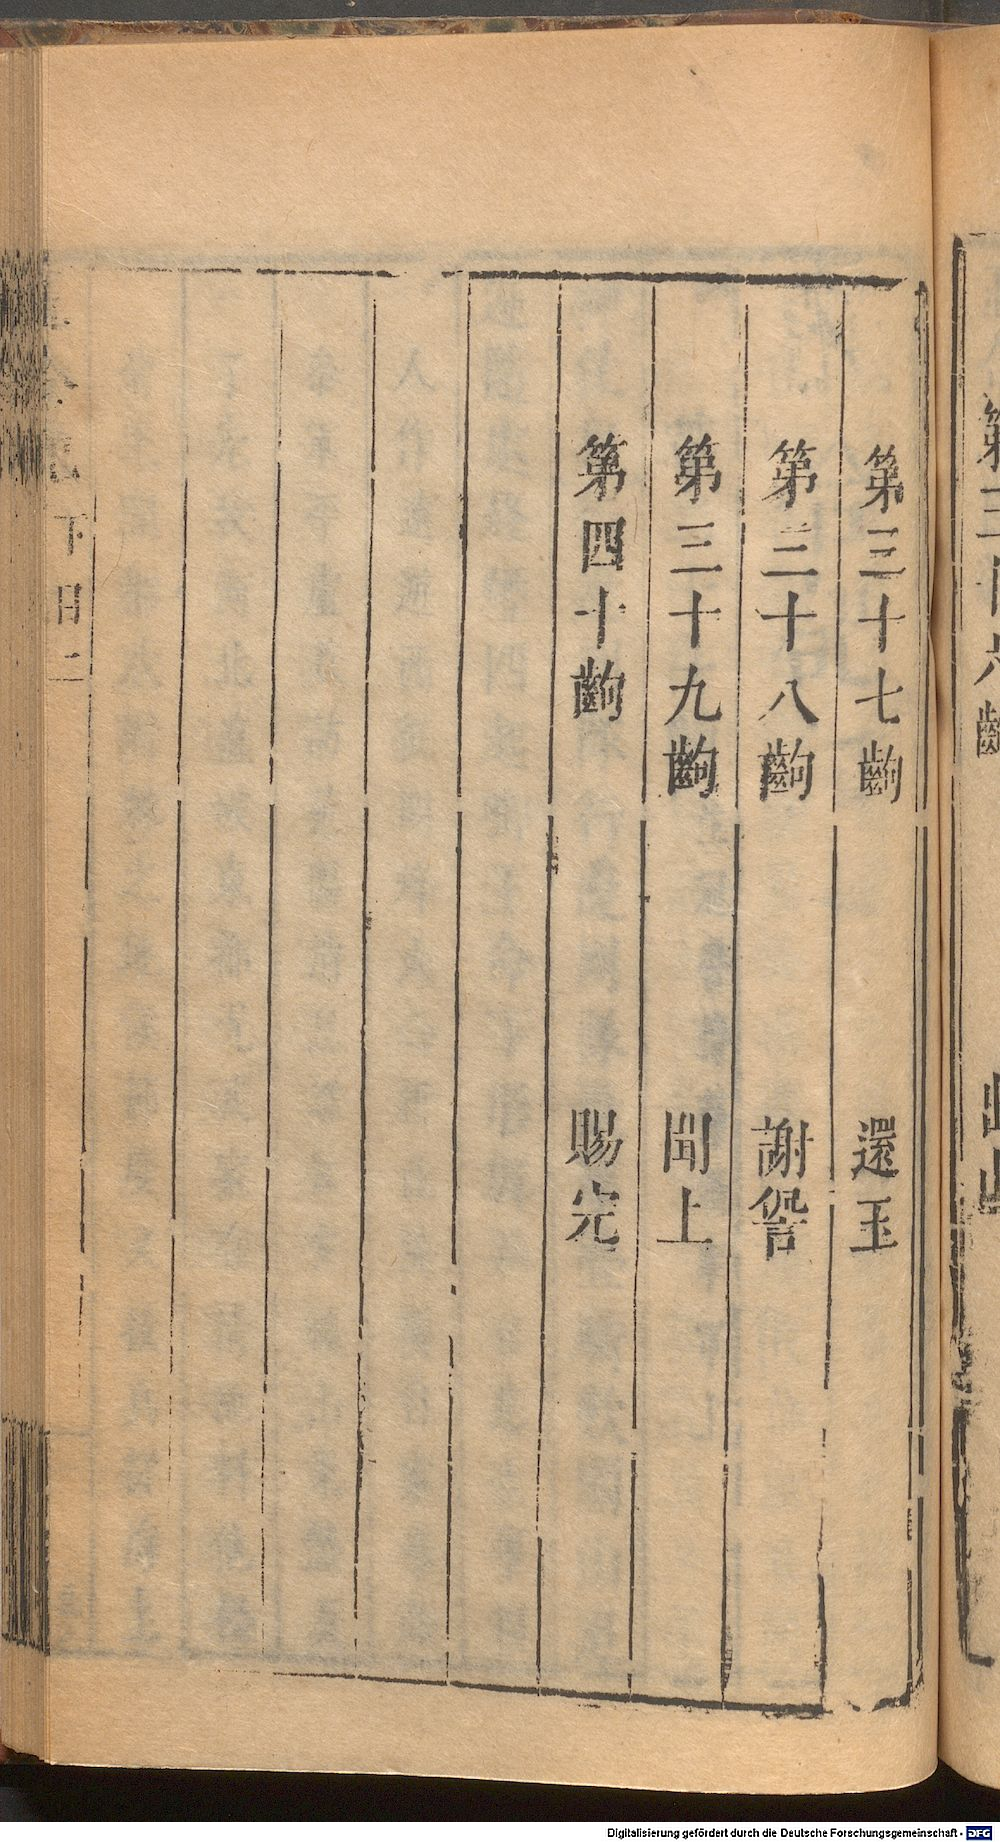 第三十七齣 還玉
第三十八齣 謝咎
第三十九齣 聞上
第四十齣 賜完
下目二
Digitalisierung gefördert durch die Deutsche Forschungsgemeinschaft - DFG